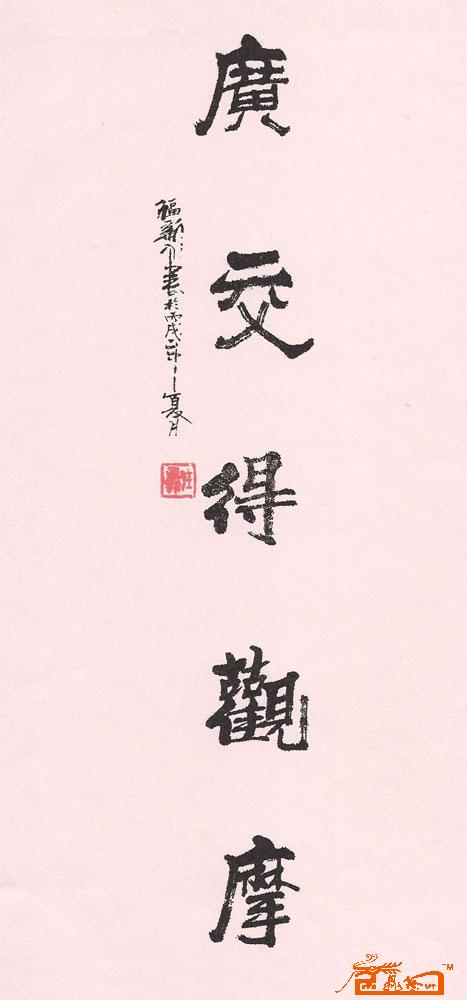 廣交得觀摩
福新書於丙戌年夏月